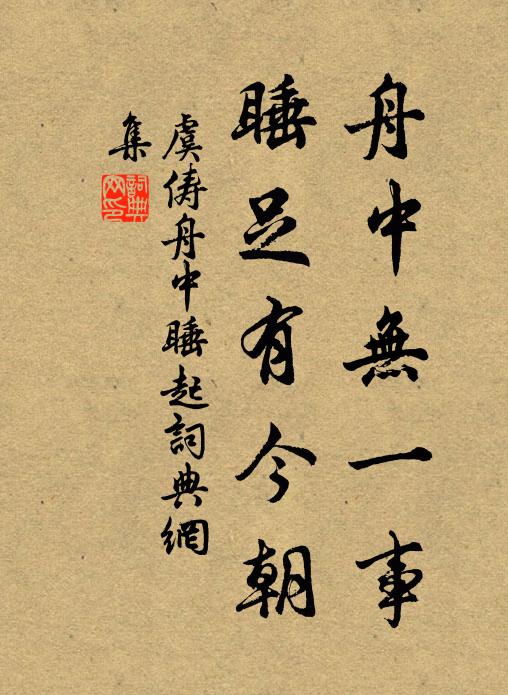 舟中無一事
睡足有今朝
虞儔舟中睡起詞典網
集
詞典
網印